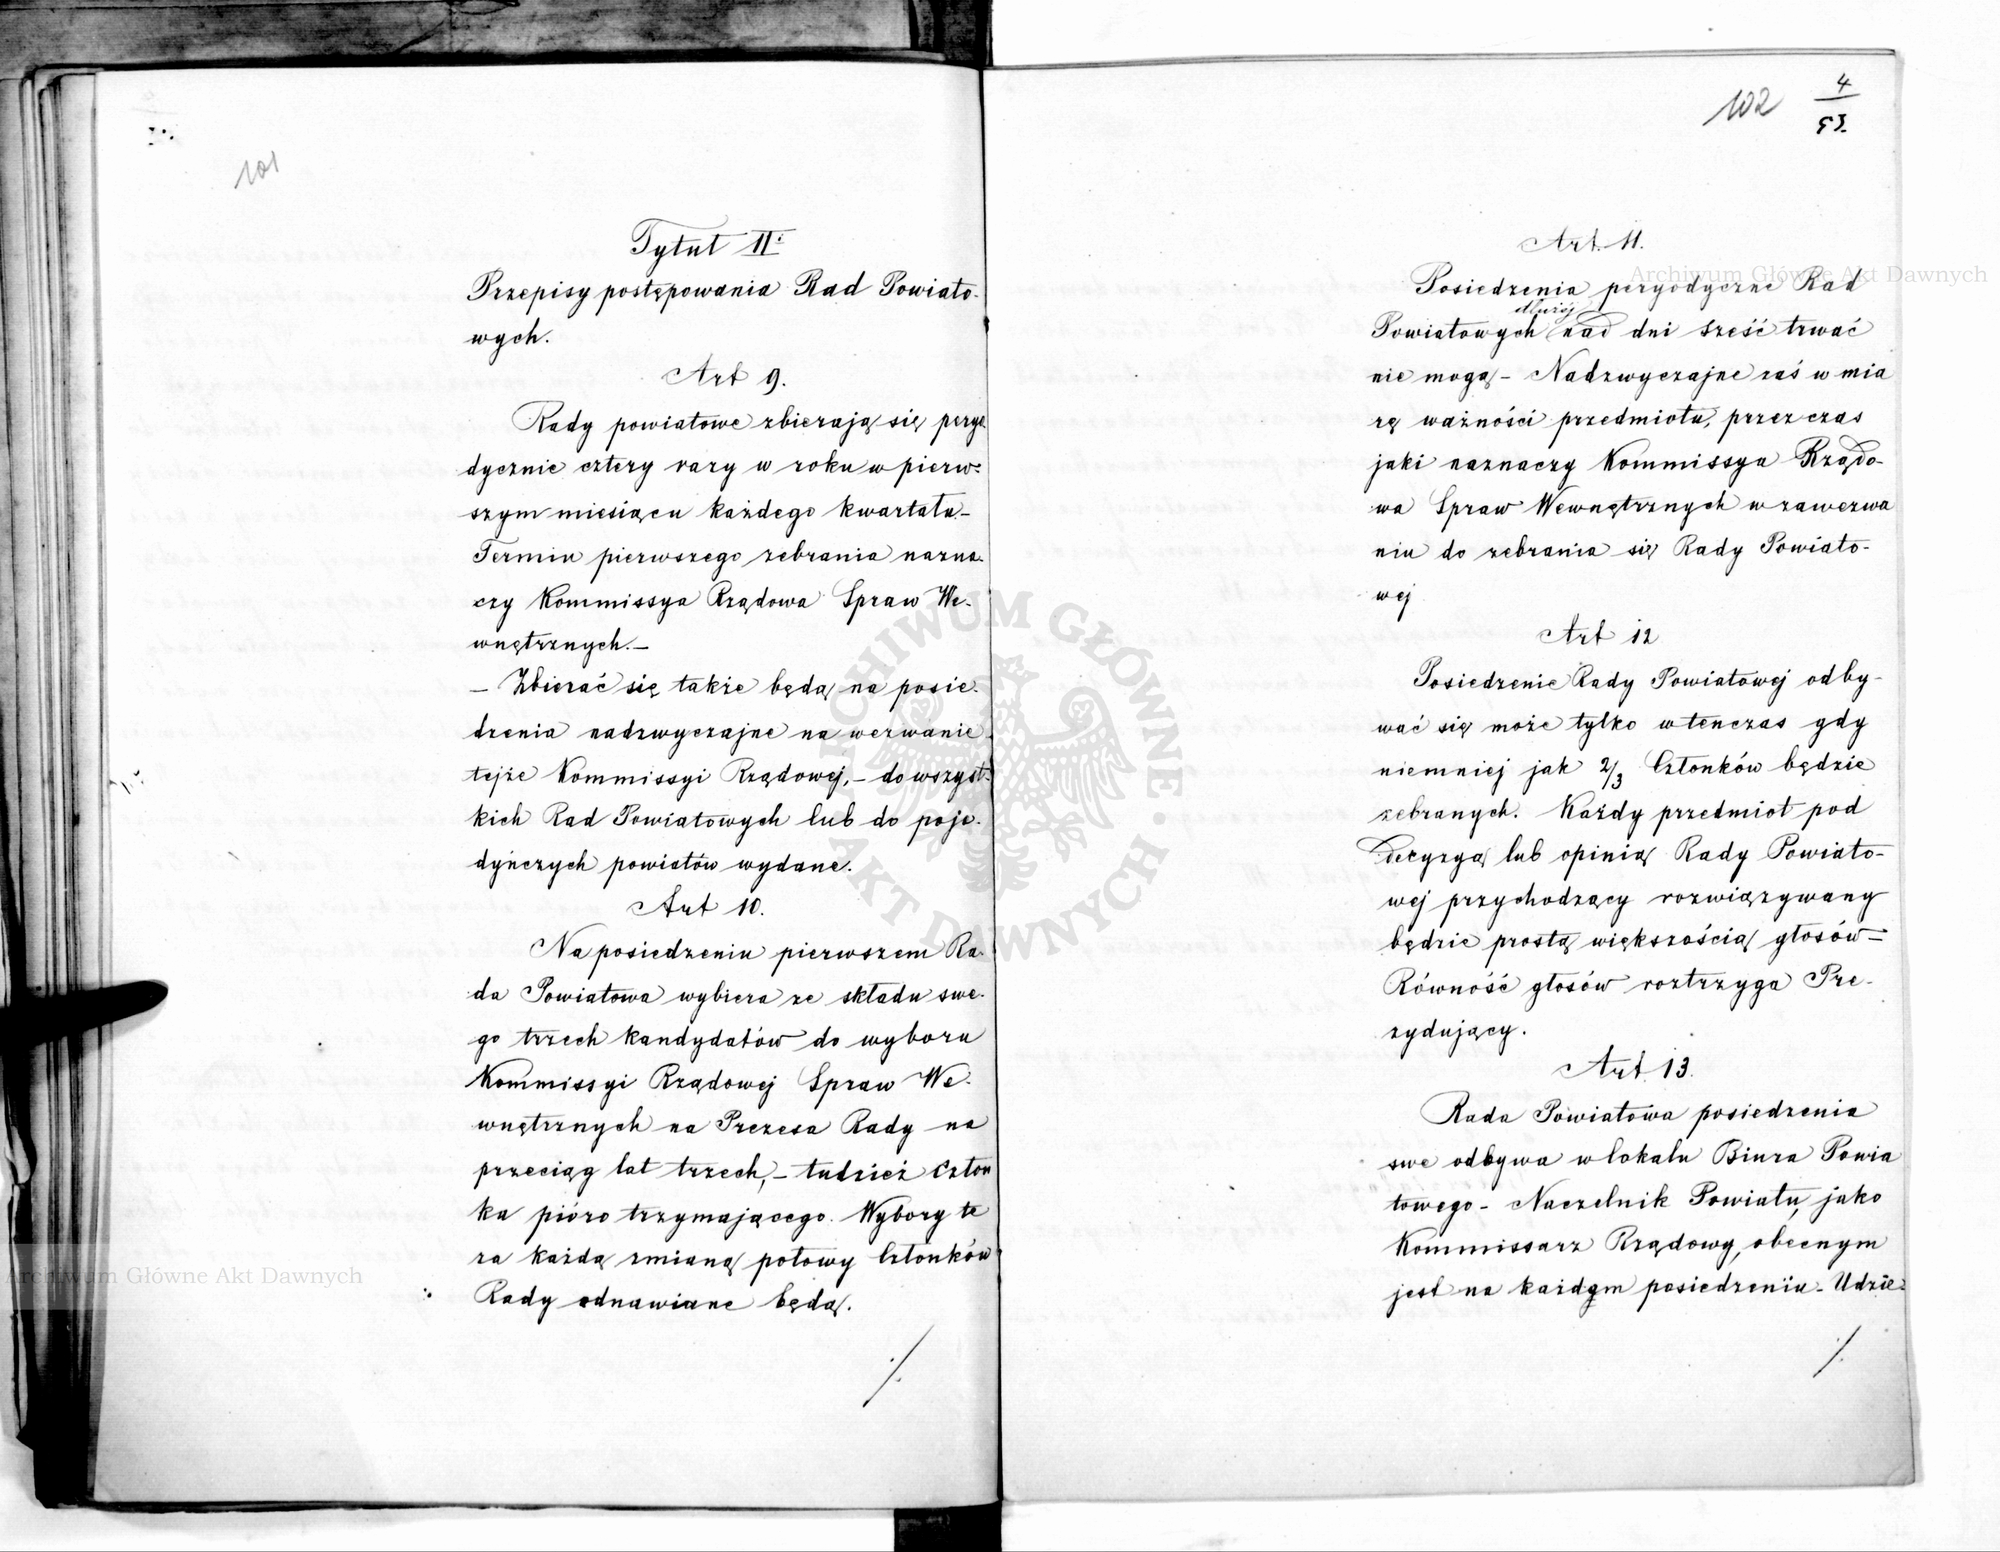 101
Tytuł II.
Przepisy postępowania Rad Powiato-
wych.
Art 9.
Rady powiatowe zbierają się peryo
dycznie cztery razy w roku w pierw-
szym miesiącu każdego kwartału.-
Termin pierwszego zebrania nazna-
czy Kommissya Rządowa Spraw We-
wnętrznych.-
- Zbierać się także będą na posie-
dzenia nadzwyczajne na wezwanie
tejże Kommissyi Rządowej, - do wszyst-
kich Rad Powiatowych lub do poje-
dyńczych powiatów wydane.
Art 10.
Na posiedzeniu pierwszem Ra-
da Powiatowa wybiera ze składu swe-
go trzech kandydatów do wyboru
Kommissyi Rządowej Spraw We-
wnętrznych na Prezesa Rady na
przeciąg lat trzech, - tudzież człon
ka pióro trzymającego. Wybory te
za każdą zmianą połowy Członków
Rady odnawiane będą.
./.
102
4
Art. 11.
Posiedzenia peryodyczne Rad
dłużéj
Powiatowych nad dni sześć trwać
nie mogą - Nadzwyczajne zaś w mia
rę ważności przedmiotu, przez czas
jaki naznaczy Kommissya Rządo-
wa Spraw Wewnętrznych w zawezwa
niu do zebrania się Rady Powiato-
wej
Art 12
Posiedzenie Rady Powiatowej odby-
wać się może tylko wtenczas gdy
niemniej jak 2/3 Członków będzie
zebranych. Każdy przedmiot pod
decyzyą lub opinią Rady Powiato-
wej przychodzący rozwiązywany
będzie prostą większością głosów -
Równość głosów roztrzyga Pre-
zydujący.
Art. 13.
Rada Powiatowa posiedzenia
swe odbywa w lokalu Biura Powia
towego - Naczelnik Powiatu, jako
Kommissarz Rządowy, obecnym
jest na każdym posiedzeniu - Udzie-
./.
Archiwum Główne Akt Dawnych
ARCHIWUM GŁÓWNE • AKT DAWNYCH •
Archiwum Główne Akt Dawnych